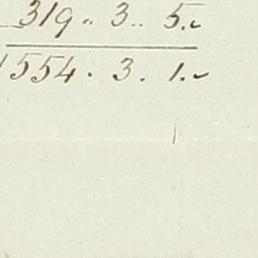 319 .. 3 .. 5. ~
1554 . 3 . 1. ~